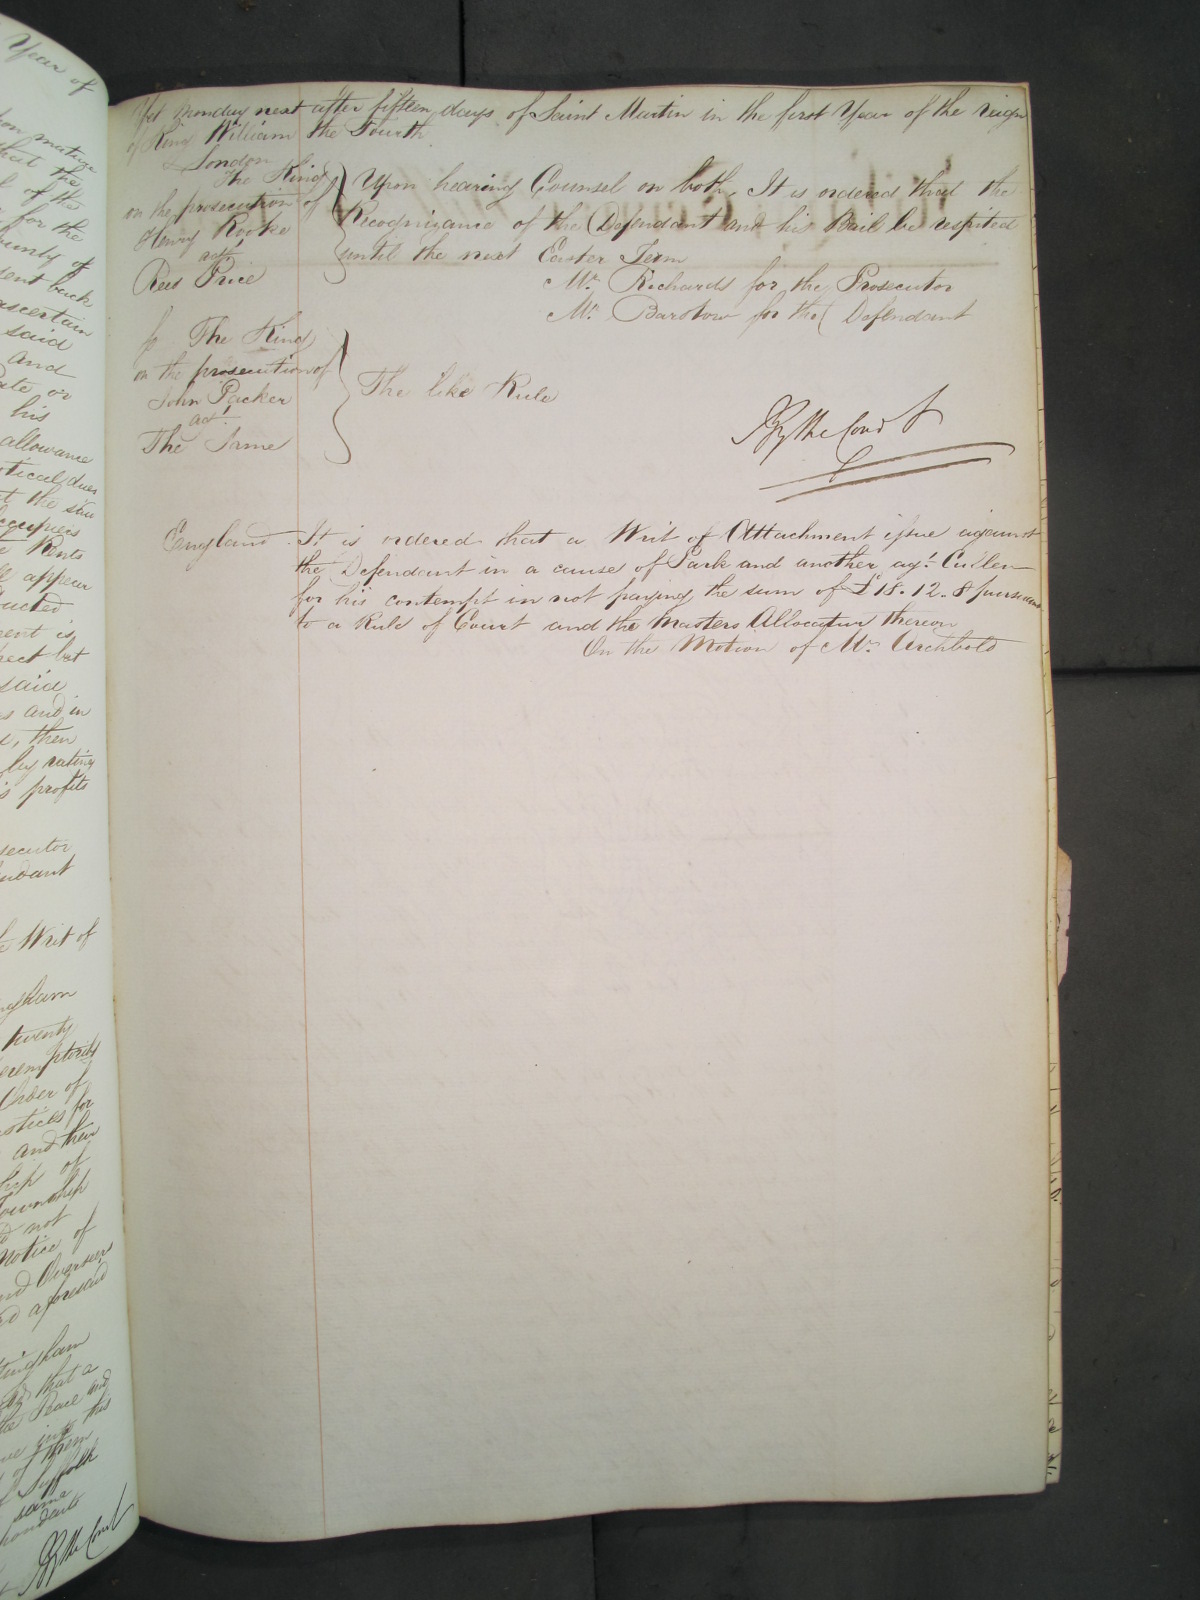 Yet Monday next after fifteen days of Saint Martin in the first Year of the reign
of King William the Fourth
London
The King
on the prosecution of
Henry Rooke
agt
Rees Price
Upon hearing Counsel on both, It is ordered that the
Recognizance of the Defendant and his Bail be respited
until the next Easter Term
Mr. Richards for the Prosecutor
Mr. Barstow for the Defendant
The King
on the prosecution of
John Packer
agt.
The Same
The like Rule
By the Court
England It is ordered that a Writ of Attachment issue against
the Defendant in a cause of Park and another agt. Cullen
for his contempt in not paying the sum of £18.12.8 pursuant
to a Rule of Court and the Masters Allocatur thereon
On the Motion of Mr. Archbold
Year of
that the
of the
for the
County of
sent back
ascertain
said
and
his
allowance
Rents
appear
said
and in
then
by rating
profits
Writ of
twenty
Order of
and their
of
Township
not
Notice of
and Overseers
aforesaid
that a
Peace and
this
of them
Suffolk
same
By the Court